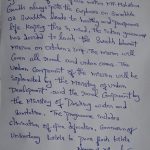 Gandhi always put the emphasis on Swachhta
as Swachhta leads to healthy and prosperous
life. Keeping this in mind, the Indian government
has decided to launch the Swachh Bharat
mission on october 2, The mission will
cover all rural and urban areas. The
urban component of the mission will be
implemented by the Ministry of urban
Development, and the rural component
by the Ministry of Drinking water and
Sanitation. The Programme includes
elimination of open defecation, Conversion of
unsanitary toilets to pour flush toilets